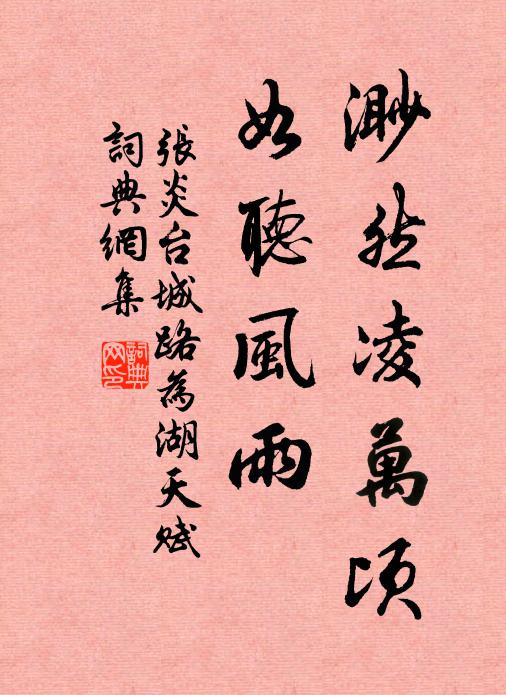 渺然凌萬頃
如聽風雨
張炎台城路為湖天賦
詞典網集
詞典
网印